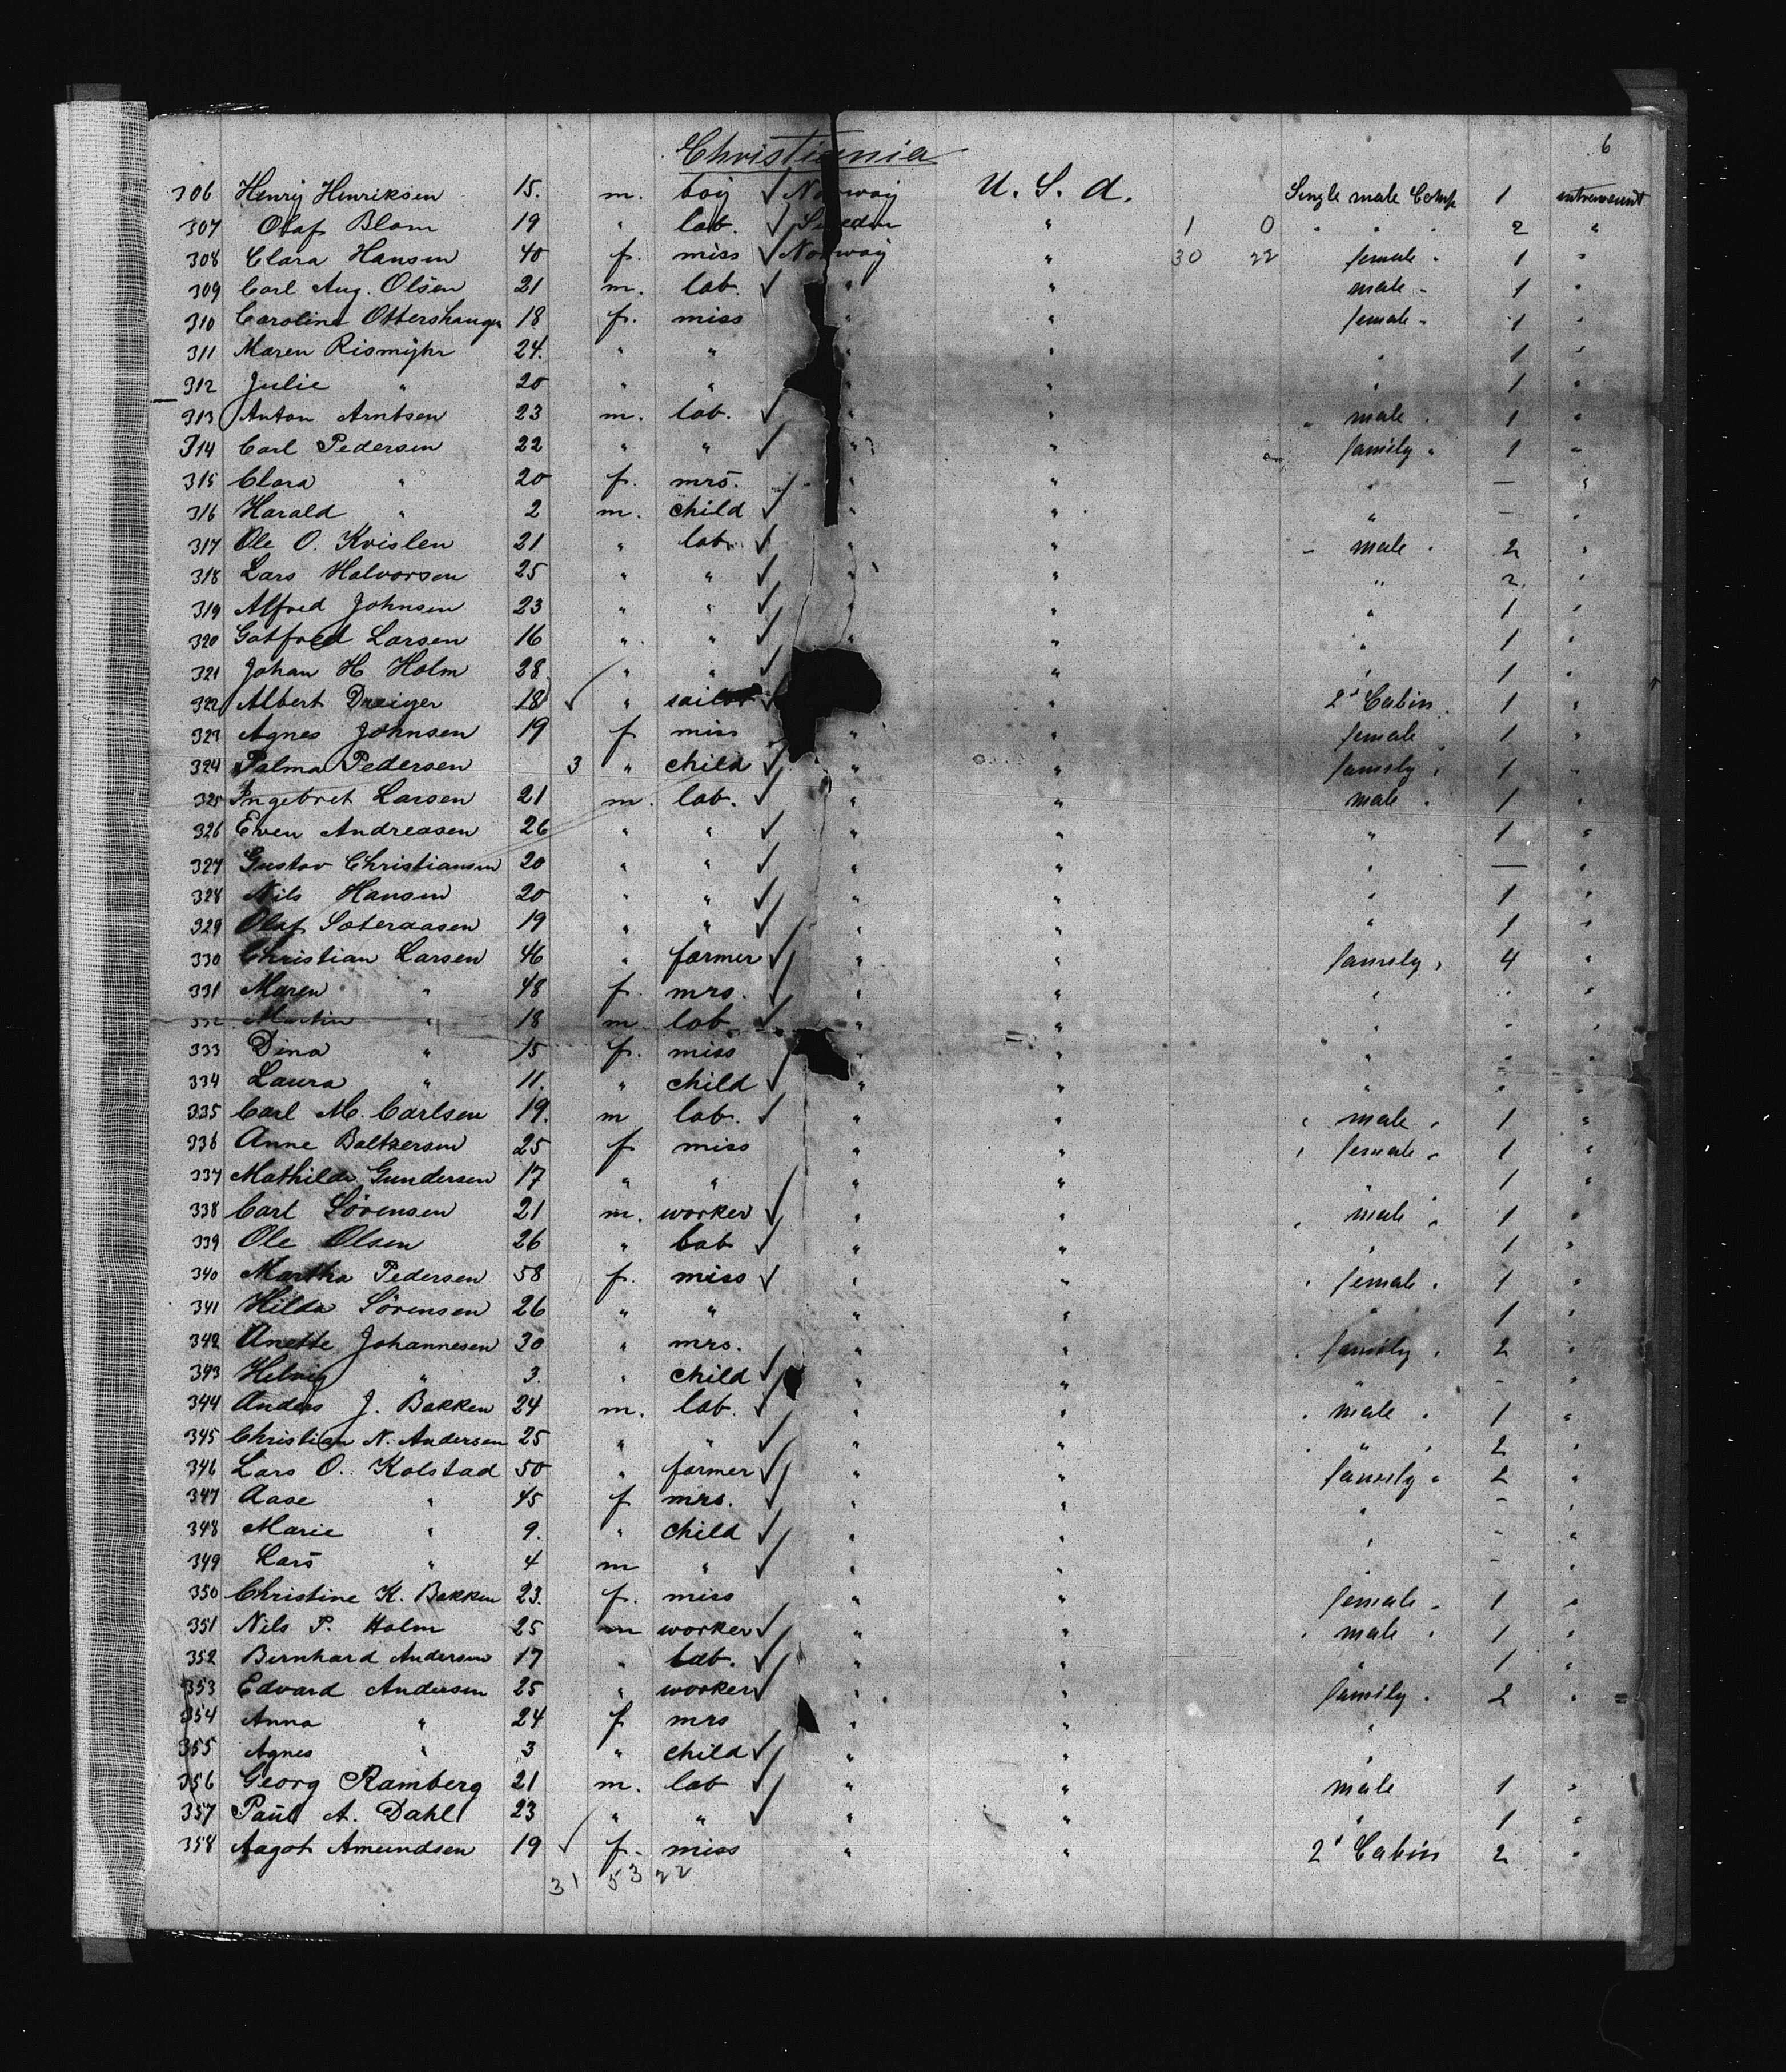 Christiania
6
306 Henrij Henriksen 15. m. boy ✓ Norway U. S. A. Single male Comp 1 intransit
307 Olaf Blom 19 " lab. ✓ Sweden " 1 0 " " " 2 "
308 Clara Hansen 40 f. miss ✓ Norway " 30 22 female " 1 "
309 Carl Aug. Olsen 21 m. lab. ✓ " " male " 1 "
310 Caroline 18 f. miss " " female " 1 "
311 Maren Rismyhr 24. " " " " " 1 "
312 Julie " 20 " " " " " 1 "
313 Anton Arntsen 23 m. lab. ✓ " " " male " 1 "
314 Carl Pedersen 22 " " ✓ " " family " 1 "
315 Clara " 20 f. mrs. ✓ " " " — "
316 Harald " 2 m. child ✓ " " " — "
317 Ole O. Kvislen 21 " lab. ✓ " " male " 2 "
318 Lars Halvorsen 25 " " ✓ " " " 2 "
319 Alfred Johnsen 23 " " ✓ " " " 1 "
320 Gotfred Larsen 16 " " ✓ " " " 1 "
321 Johan H Holm 28 " " ✓ " " 1 "
322 Albert Dreiyer 18 ✓ " sailor ✓ " 2d Cabin 1 "
323 Agnes Johnsen 19 f miss " " female 1 "
324 Palma Pedersen 3 " child ✓ " " family " 1 "
325 Ingebret Larsen 21 m. lab. ✓ " " male " 1 "
326 Even Andreasen 26 " " ✓ " " " 1 "
327 Gustav Christiansen 20 " " ✓ " " " — "
328 Nils Hansen 20 " " ✓ " " " 1 "
329 Olaf Sateraasen 19 " " ✓ " " " 1 "
330 Christian Larsen 46 " farmer ✓ " " family " 4 "
331 Maren " 48 f. mrs. ✓ " " " " "
332 Martin " 18 m. lab ✓ " " " " "
333 Dina " 15 f. miss " " " " "
334 Laura " 11. " child ✓ " " " " "
335 Carl M. Carlsen 19. m lab. ✓ " " " male " 1 "
336 Anne Baltzersen 25 f miss " " " female " 1 "
337 Mathilde Gundersen 17 " " " " " 1 "
338 Carl Sörensen 21 m. worker ✓ " " " male " 1 "
339 Ole Olsen 26 " Lab ✓ " " " 1 "
340 Martha Pedersen 58 f. miss ✓ " " " female " 1 "
341 Hilda Sörensen 26 " " " " " 1 "
342 Anette Johannesen 30 " mrs. " " " family " 2 "
343 Helvig " 3. " child ✓ " " " - "
344 Anders J. Bakken 24 m. lab. ✓ " " " male " 1 "
345 Christian N. Andersen 25 " " ✓ " " " " " 2 "
346 Lars O. Kolstad 50 " farmer ✓ " " family " 2 "
347 Aase " 45 f mrs. ✓ " " " - "
348 Marie " 9. " child ✓ " " " - "
349 Lars " 4 m " ✓ " " " - "
350 Christine K. Bakken 23. f. miss " " female " 1 "
351 Nils P. Holm 25 m worker ✓ " " " male " 1 "
352 Bernhard Andersen 17 " Lab. ✓ " " " 1 "
353 Edvard Andersen 25 " worker ✓ " " family " 2 "
354 Anna " 24 f mrs " " "
355 Agnes " 3 " child ✓ " " "
356 Georg Ramberg 21 m. lab ✓ " " male 1 "
357 Paul A. Dahl 23 " " ✓ " " " 1 "
358 Aagot Amundsen 19 ✓ f. miss " " 2d Cabin 2 "
31 53 22